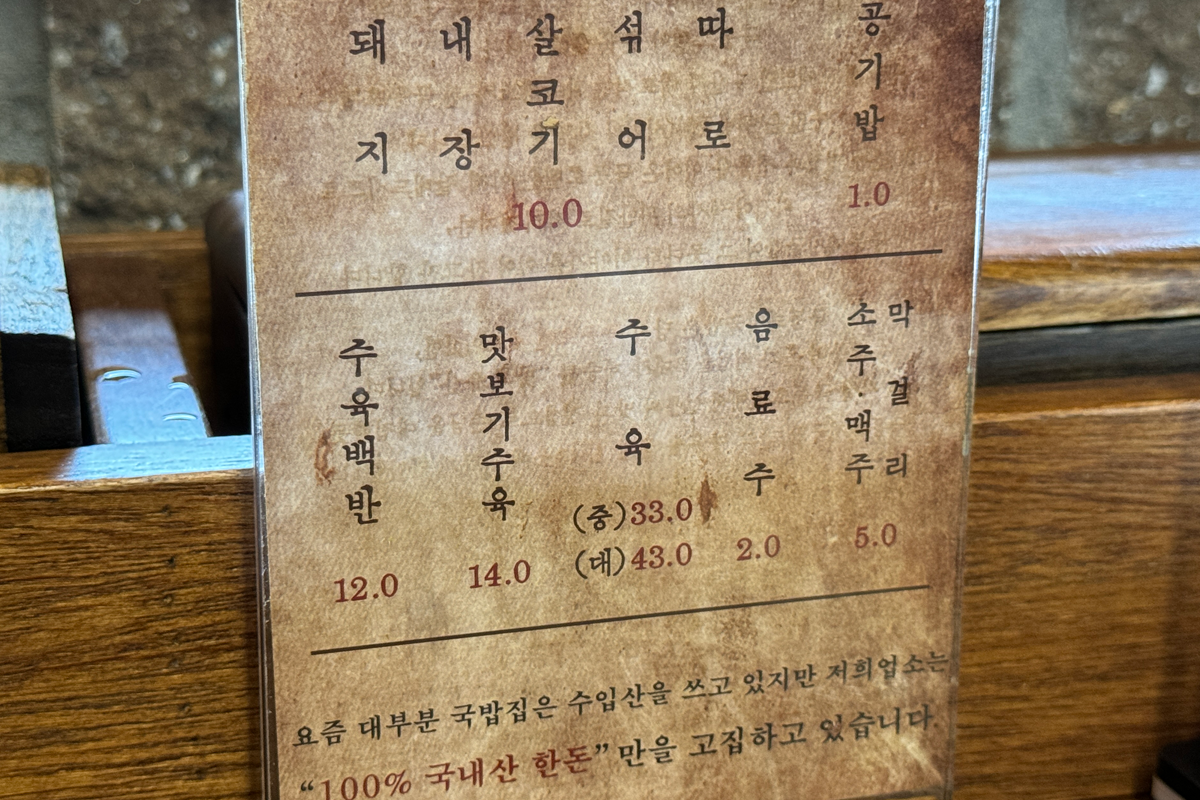 돼지
내장
살코기
섞어
따로
10.0
공기밥
1.0
주육백반
12.0
맛보기주육
14.0
주육
(중)33.0
(대)43.0
음료주
2.0
소주·맥주
막걸리
5.0
요즘 대부분 국밥집은 수입산을 쓰고 있지만 저희업소는
“100% 국내산 한돈”만을 고집하고 있습니다.